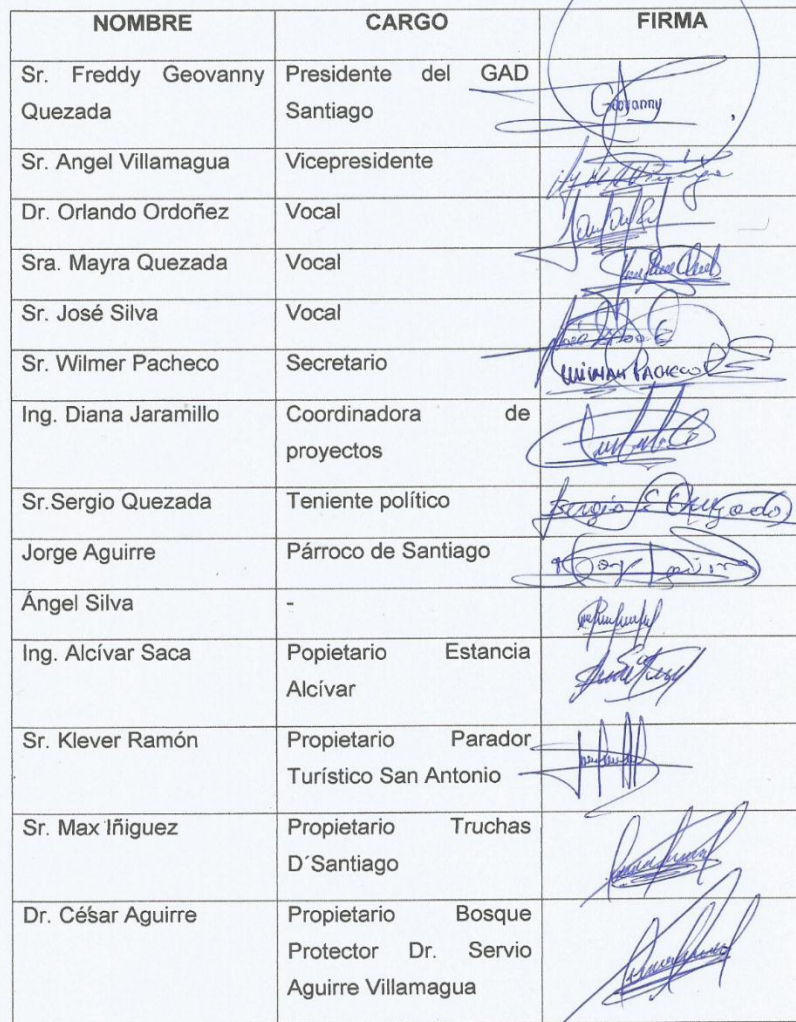 NOMBRE CARGO FIRMA
Sr. Freddy Geovanny Presidente del GAD
Quezada Santiago Geovanny
Sr. Angel Villamagua Vicepresidente
Dr. Orlando Ordoñez Vocal
Sra. Mayra Quezada Vocal
Sr. José Silva Vocal
Sr. Wilmer Pacheco Secretario WILMAN PACHECO
Ing. Diana Jaramillo Coordinadora de
proyectos
Sr.Sergio Quezada Teniente político Sergio Quezada
Jorge Aguirre Párroco de Santiago
Ángel Silva -
Ing. Alcívar Saca Popietario Estancia
Alcívar
Sr. Klever Ramón Propietario Parador
Turístico San Antonio
Sr. Max Iñiguez Propietario Truchas
D´Santiago
Dr. César Aguirre Propietario Bosque
Protector Dr. Servio
Aguirre Villamagua